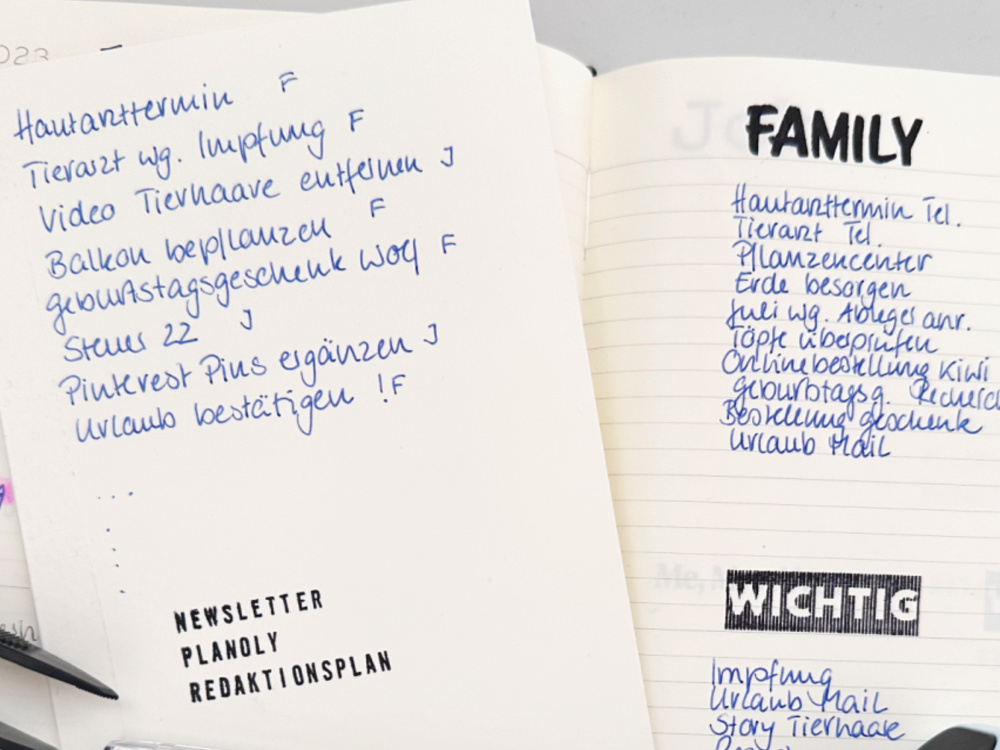 2023
Hautarzttermin F
Tierarzt wg. Impfung F
Video Tierhaare entfernen J
Balkon bepflanzen F
geburtstagsgeschenk Wolf F
Steuer 22 J
Pinterest Pins ergänzen J
Urlaub bestätigen ! F
...
NEWSLETTER
PLANOLY
REDAKTIONSPLAN
FAMILY
Hautarzttermin Tel.
Tierarzt Tel.
Pflanzencenter
Erde besorgen
Juli wg. Ableger anr.
Töpfe überprüfen
Onlinebestellung Kiwi
geburtstagsg. Recherc
Bestellung geschenk
Urlaub Mail
WICHTIG
Impfung
Urlaub Mail
Story Tierhaare